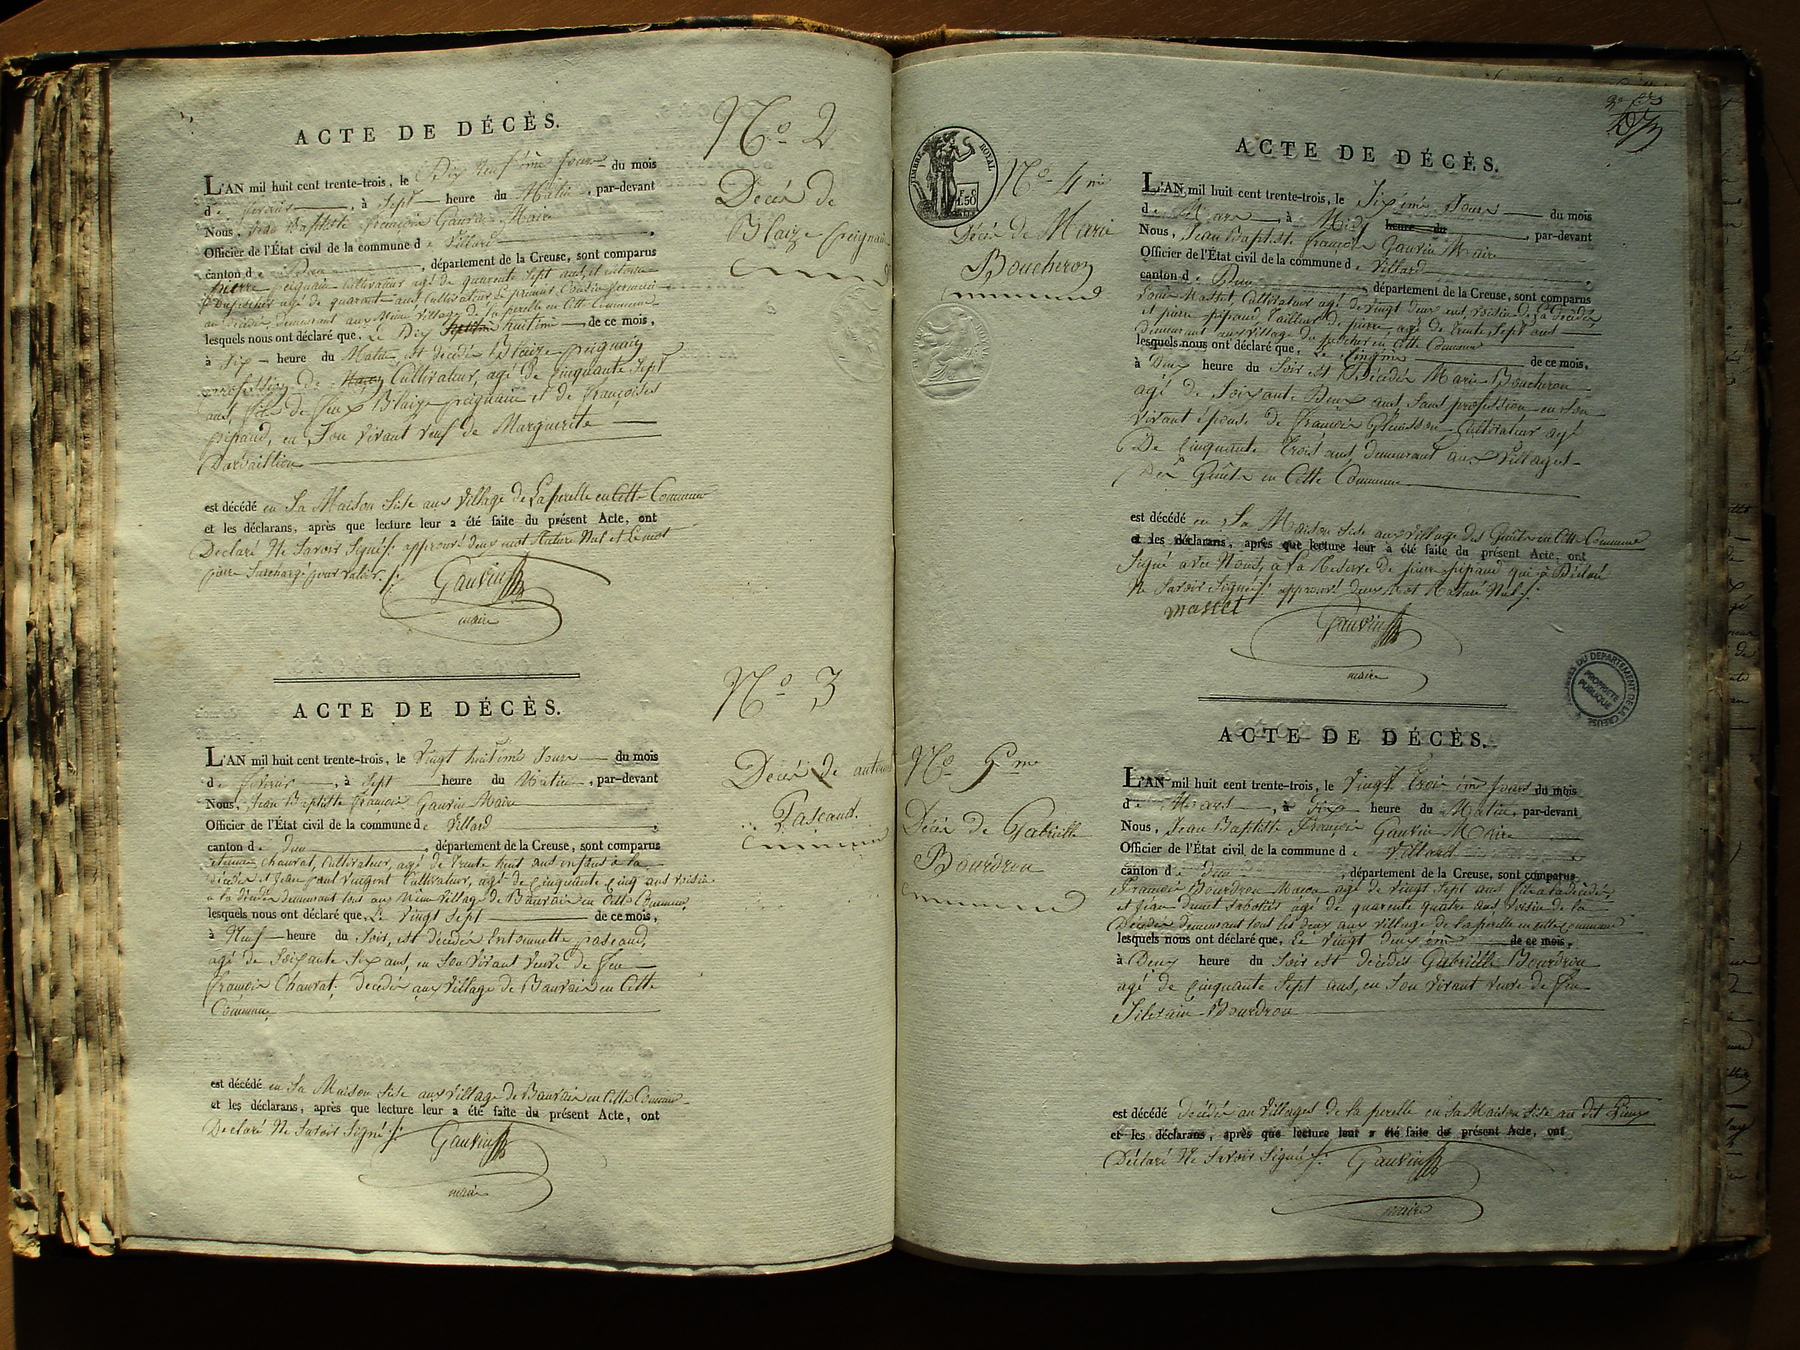 ACTE DE DÉCÈS.
L'AN mil huit cent trente-trois, le Dix neuf ime Jour du mois
de fevrier, à Sept heure du Matin, par-devant
Nous, Jean Baptiste françois Gauvin Maire
Officier de l'État civil de la commune de Villard
canton de dun, département de la Creuse, sont comparus
pierre peignain Cultivateur agé de quarente Sept ans, et
agé de quarante ans Cultivateur, Le premier Cousin Germain
au décédé, demeurant aux Même village de La perelle en Cette Commune
lesquels nous ont déclaré que, Le Dix huitime de ce mois,
à Six heure du Matin est décédé Blaize peignain
profession de Cultivateur, agé de Cinquante Sept
ans, fils de feux Blaize peignain et de françoises
pipaud, en Son vivant veuf de Marguerite
Darvaillion
est décédé en Sa Maison Sise aux village de La perelle en Cette Commune
et les déclarans, après que lecture leur a été faite du présent Acte, ont
Declaré Ne Savoir Signé/: approuvé deux mot Nature Nul et Le mot
pierre Surchargé pour valoir./:
Gauvin
maire
No. 2
Décès de
Blaize peignain
ACTE DE DÉCÈS.
L'AN mil huit cent trente-trois, le vingt huitime Jour du mois
de fevrier, à Sept heure du Matin, par-devant
Nous, Jean Baptiste francois Gauvin Maire
Officier de l'État civil de la commune de Villard
canton de dun, département de la Creuse, sont comparus
etienne chauvat, Cultivateur, agé de trente huit ans enfant à la
décédée et Jean paul vincent Cultivateur, agé de Cinquante Cinq ans voisin
à la décédée demeurant tout aux Même village de Bauvais en Cette Commune,
lesquels nous ont déclaré que, Le vingt Sept de ce mois,
à Neuf heure du Soir, est décédée Entoinnette paseaud,
agé de Soixante Six ans, en Son vivant veuve de feu
francois Chauvat, Decédée aux village de Bauvais en Cette
Commune
est décédé en Sa Maison Sise aux village de Bauvais en Cette Commune
et les déclarans, après que lecture leur a été faite du présent Acte, ont
Declaré Ne Savoir Signé/:
Gauvin
maire
No. 3
Décès de
Paseaud.
TIMBRE ROYAL
F. C
1.50
No. 4 me
Décès de Marie
Boucheron
ACTE DE DÉCÈS.
L'AN mil huit cent trente-trois, le Sixime Jours du mois
de Mars, à Midy heure du, par-devant
Nous, Jean Baptiste françois Gauvin Maire
Officier de l'État civil de la commune de Villard
canton de Dun, département de la Creuse, sont comparus
Louis Masset Cultivateur agé de vingt deux ans, voisin de la décédée,
et pierre pipaud tailleur de pierre agé de trente Sept ans
demeurant aux village du en Cette Commune
lesquels nous ont déclaré que, Le Cinqime de ce mois,
à Deux heure du Soir est Décédée Marie Boucheron
agé de Soixante Deux ans Sans profession en Son
vivant épouse de francois Cultivateur agé
De Cinquante trois ans demeurant aux villages
des en Cette Commune
est décédé en Sa Maison Sise aux village des en Cette Commune
et les déclarans, après que lecture leur a été faite du présent Acte, ont
Signé avec Nous, à La Reserve de pierre pipaud qui à Déclaré
Ne Savoir Signé/: approuvé deux Mot Nature Nul/:
massет
Gauvin
maire
ARCHIVES DU DEPARTEMENT DE LA CREUSE
PROPRIETE PUBLIQUE
No. 5 me
Décès de Gabrielle
Bourdron
ACTE DE DÉCÈS.
L'AN mil huit cent trente-trois, le vingt trois ime Jours du mois
de Mars, à Six heure du Matin, par-devant
Nous, Jean Baptiste François Gauvin Maire
Officier de l'État civil de la commune de Villard
canton de dun, département de la Creuse, sont comparus
Francois Bourdron Maçon agé de vingt Sept ans fils à la décédée,
et Jean dumet Sabotier agé de quarente quatre ans voisin de la
décédée demeurant tout les deux aux village de La perelle en cette commune
lesquels nous ont déclaré que, Le vingt deux ime de ce mois,
à Deux heure du Soir est décédée Gabrielle Bourdron
agé de Cinquante Sept ans, en Son vivant veuve de feu
Silvain Bourdron
est décédé decédée au villages de La perelle en Sa Maison Sise au dit Lieux
et les déclarans, après que lecture leur a été faite du présent Acte, ont
Déclaré Ne Savoir Signé/:
Gauvin
maire